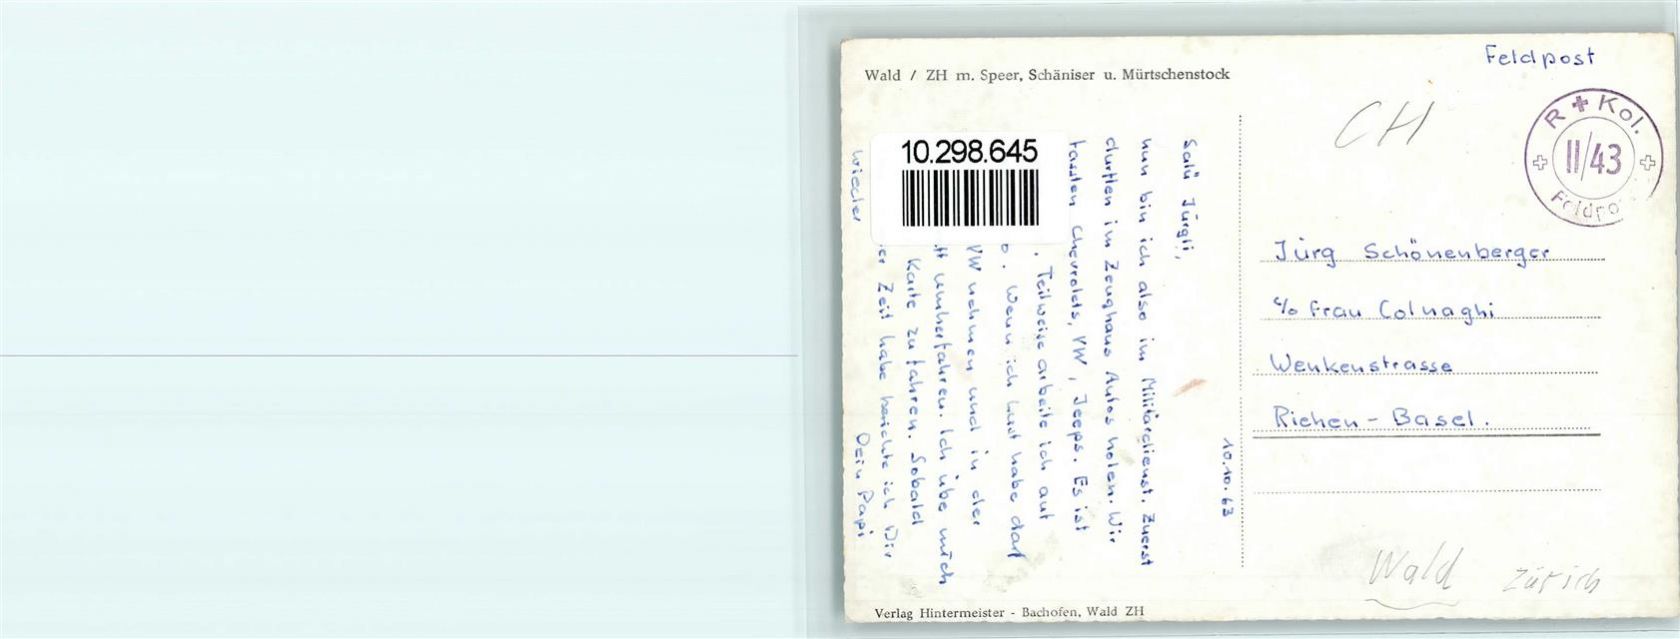 Wald / ZH m. Speer, Schäniser u. Mürtschenstock
Feldpost
CH
R + Kol.
II/43
Feldpo
10.298.645
10.10.63
Salü Jürgli,
nun bin ich also im Militärdienst. Zuerst
durften im Zeughaus Autos holen. Wir
fassten Chevrolets, VW, Jeeps. Es ist
. Teilweise arbeite ich auf
o. Wenn ich Lust habe darf
VW nehmen und in der
umherfahren. Ich übe mich
Karte zu fahren. Sobald
wieder er Zeit habe berichte ich Dir
Dein Papi
Jürg Schönenberger
c/o Frau Colnaghi
Wenkenstrasse
Riehen - Basel.
Wald Zürich
Verlag Hintermeister - Bachofen, Wald ZH